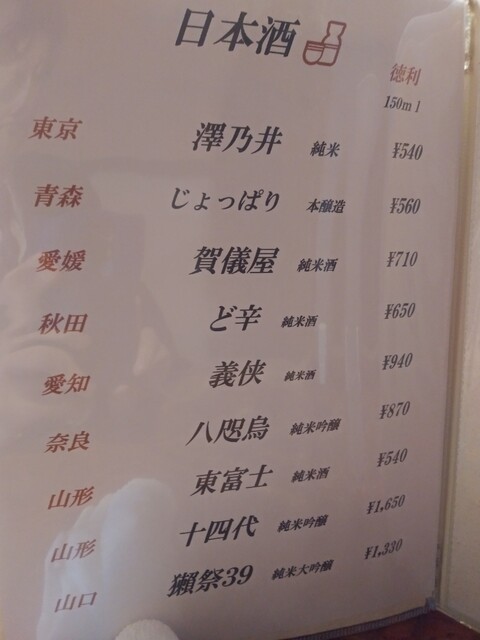 日本酒
徳利
150ml
東京 澤乃井 純米 ¥540
青森 じょっぱり 本醸造 ¥560
愛媛 賀儀屋 純米酒 ¥710
秋田 ど辛 純米酒 ¥650
愛知 義侠 純米酒 ¥940
奈良 八咫烏 純米吟醸 ¥870
山形 東富士 純米酒 ¥540
山形 十四代 純米吟醸 ¥1,650
山口 獺祭39 純米大吟醸 ¥1,330